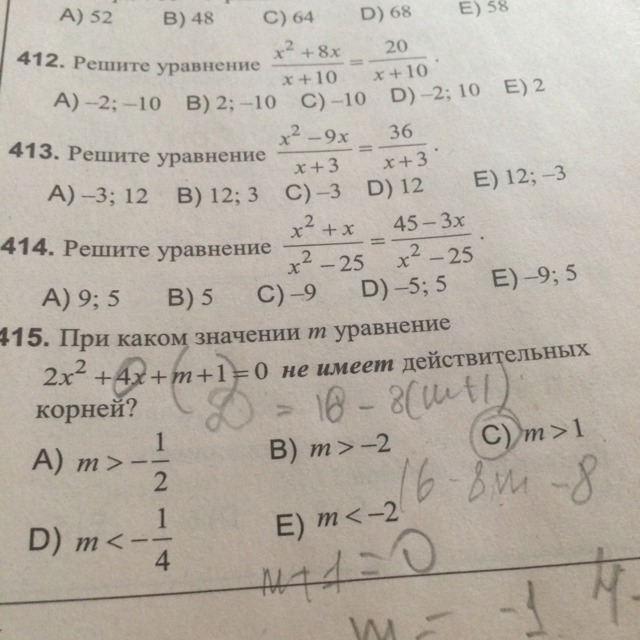 A) 52 B) 48 C) 64 D) 68 E) 58
412. Решите уравнение (x² + 8x)/(x + 10) = 20/(x + 10).
A) –2; –10 B) 2; –10 C) –10 D) –2; 10 E) 2
413. Решите уравнение (x² – 9x)/(x + 3) = 36/(x + 3).
A) –3; 12 B) 12; 3 C) –3 D) 12 E) 12; –3
414. Решите уравнение (x² + x)/(x² – 25) = (45 – 3x)/(x² – 25).
A) 9; 5 B) 5 C) –9 D) –5; 5 E) –9; 5
415. При каком значении m уравнение
2x² + 4x + m + 1 = 0 не имеет действительных
корней?
D = 16 – 8(m+1)
A) m > –1/2 B) m > –2 C) m > 1
16 – 8m – 8
D) m < –1/4 E) m < –2
m + 1 = 0
m = –1